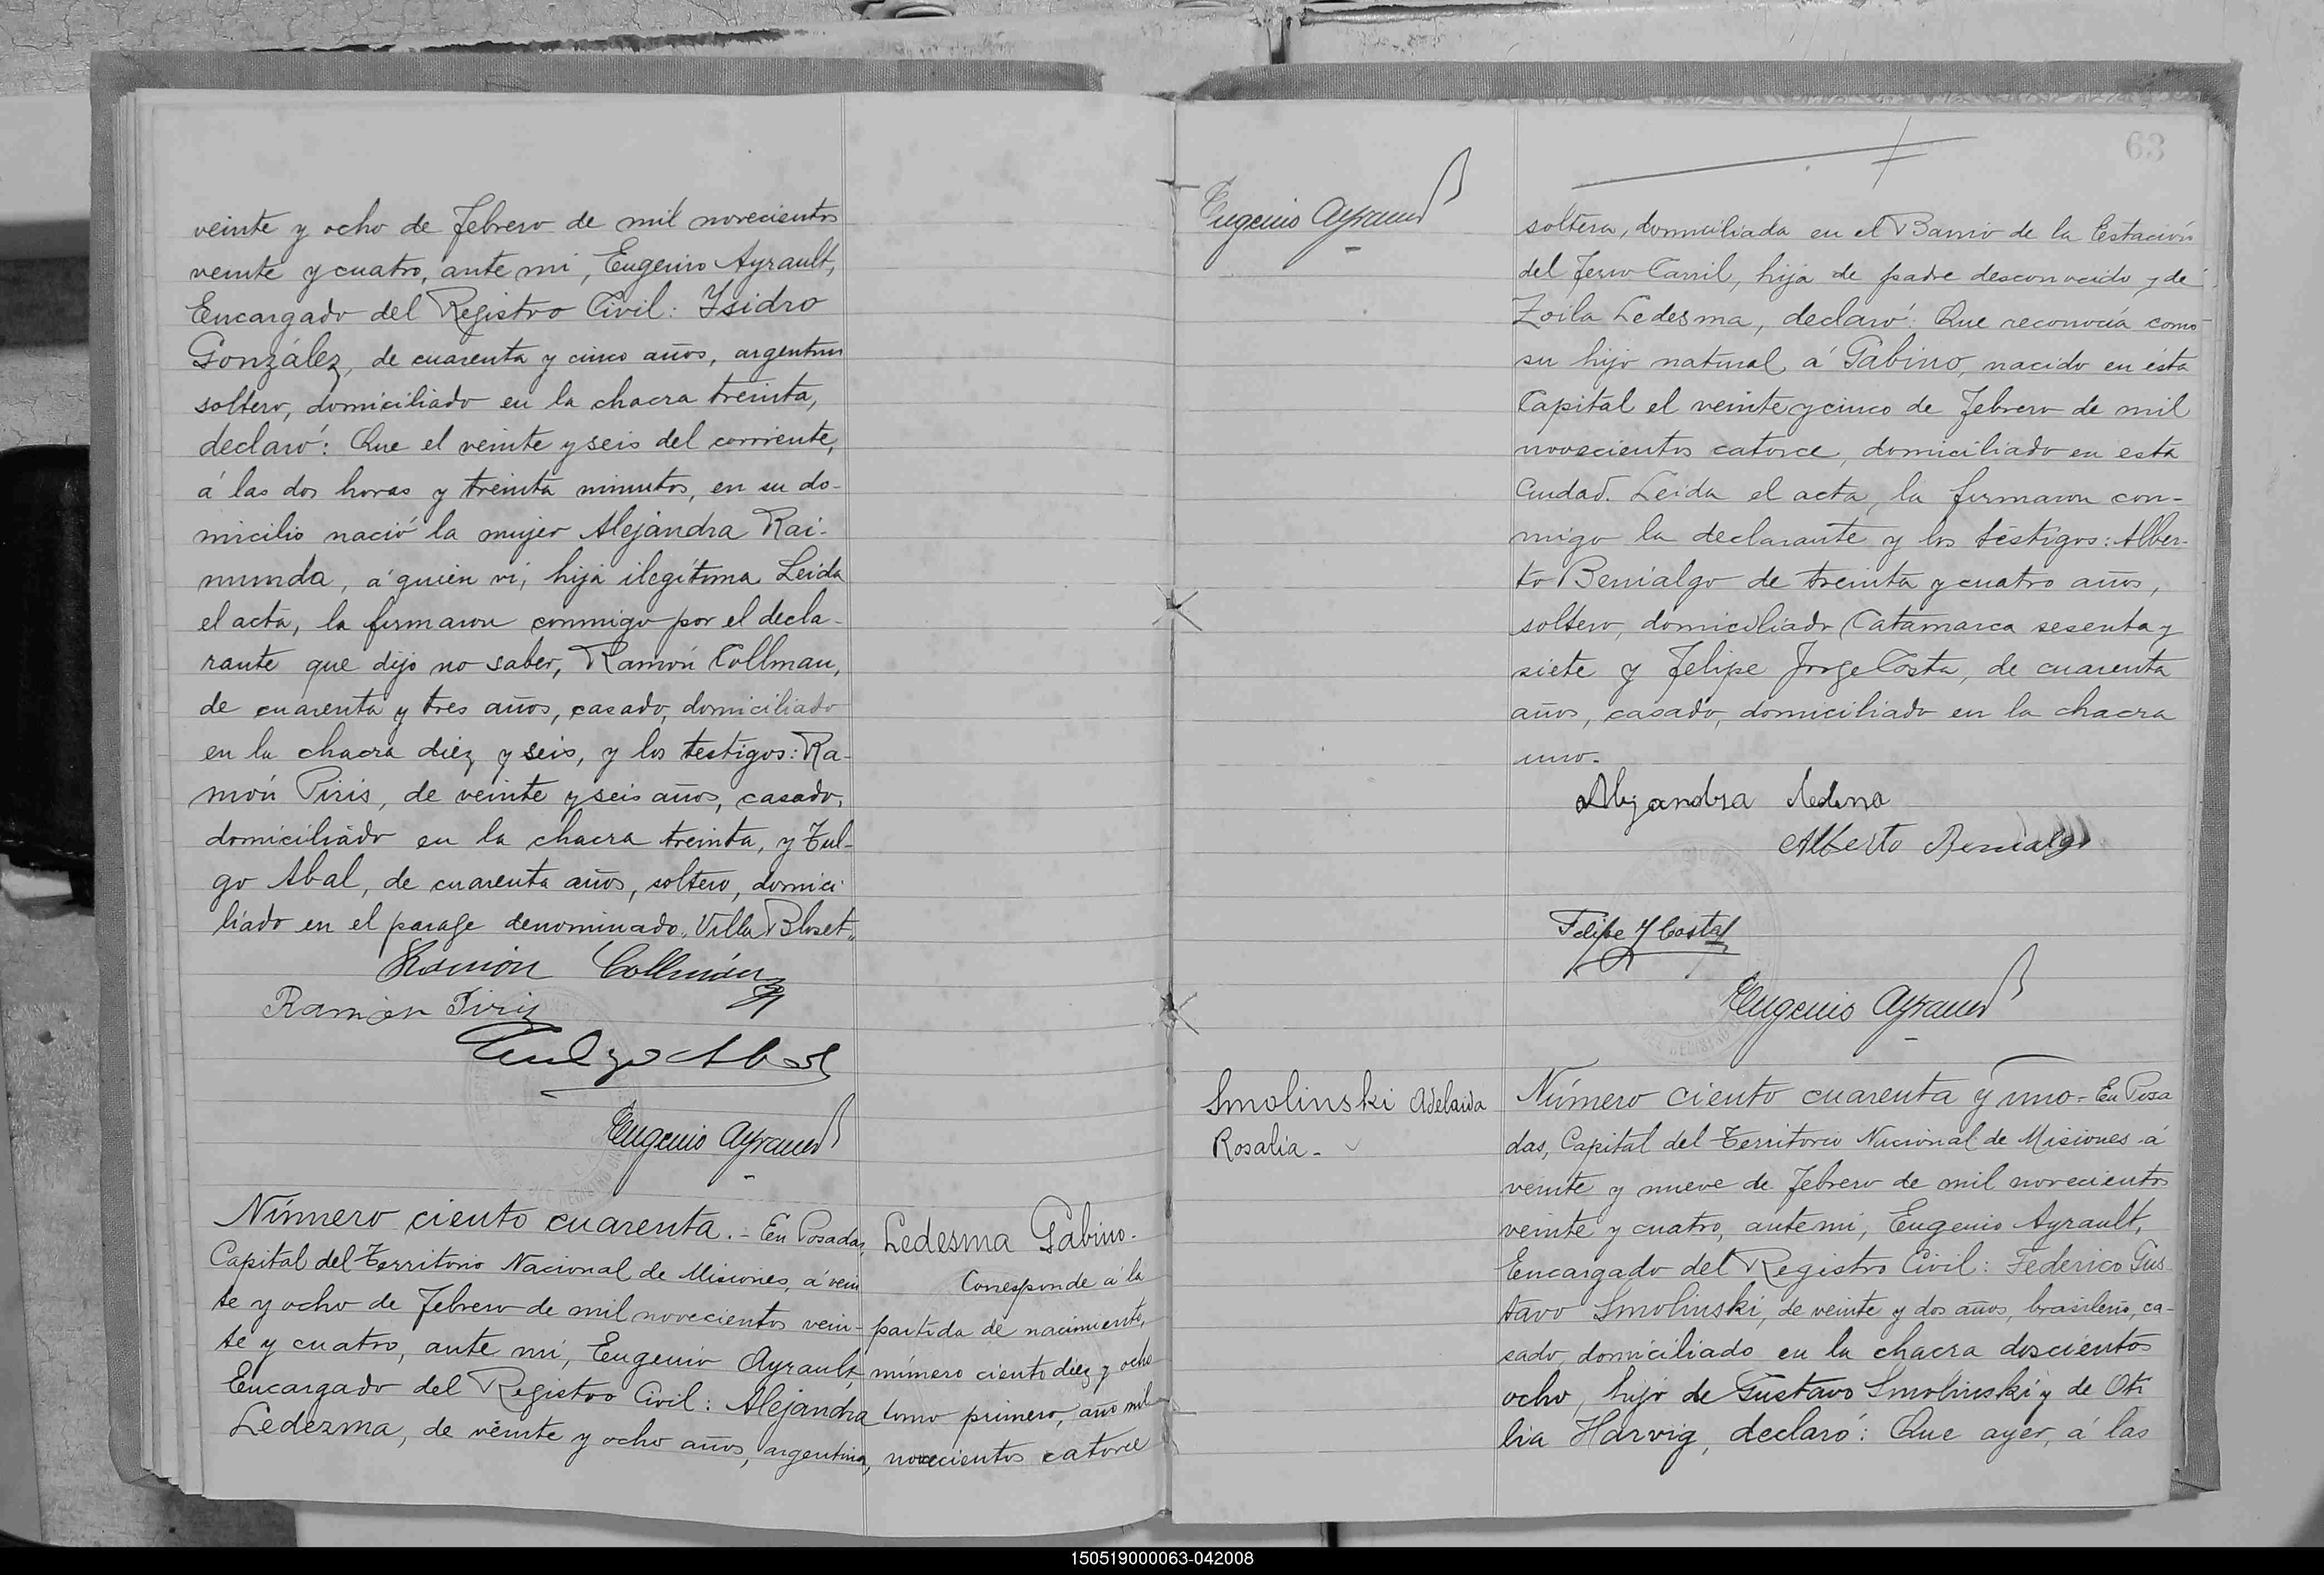 veinte y ocho de febrero de mil novecientos
veinte y cuatro, ante mi, Eugenio Ayrault,
Encargado del Registro Civil: Ysidro
González, de cuarenta y cinco años, argentino
soltero, domiciliado en la chacra treinta,
declaró: Que el veinte y seis del corriente,
á las dos horas y treinta minutos, en su do-
micilio nació la mujer Alejandra Rai-
munda, á quien vi, hija ilegítima. Leida
el acta, la firmaron conmigo por el decla-
rante que dijo no saber, Ramón Collman,
de cuarenta y tres años, casado, domiciliado
en la chacra diez y seis, y los testigos: Ra-
món Piris, de veinte y seis años, casado,
domiciliado en la chacra treinta, y Tul-
go Abal, de cuarenta años, soltero, domici
liado en el parage denominado "Villa Bloset"
Ramón Collmán
Ramón Piriz
Tulgo Abal
Eugenio Ayrault
Número ciento cuarenta.- En Posadas,
Capital del Territorio Nacional de Misiones, á vein
te y ocho de febrero de mil novecientos vein-
te y cuatro, ante mi, Eugenio Ayrault,
Encargado del Registro Civil: Alejandra
Ledezma, de veinte y ocho años, argentina,
Ledesma Gabino.
Corresponde á la
partida de nacimiento,
número ciento diez y ocho
tomo primero, año mil
novecientos catorce
Eugenio Ayrault
63
soltera, domiciliada en el Barrio de la Estación
del Ferro Carril, hija de padre desconocido y de
Zoila Ledesma, declaró: Que reconocía como
su hijo natural á Gabino, nacido en ésta
Capital el veinte y cinco de febrero de mil
novecientos catorce, domiciliado en esta
Ciudad. Leida el acta, la firmaron con-
migo la declarante y los testigos: Alber-
to Benialgo de treinta y cuatro años,
soltero, domiciliado Catamarca sesenta y
siete y Felipe Jorge Costa, de cuarenta
años, casado, domiciliado en la chacra
uno.
Alejandra Ledesma
Alberto Benialgo
Felipe J Costa
Eugenio Ayrault
Smolinski Adelaida
Rosalía.
Número ciento cuarenta y uno.- En Posa
das, Capital del Territorio Nacional de Misiones á
veinte y nueve de febrero de mil novecientos
veinte y cuatro, ante mi, Eugenio Ayrault,
Encargado del Registro Civil: Federico Gus-
tavo Smolinski, de veinte y dos años, brasileño, ca-
sado, domiciliado en la chacra doscientos
ocho, hijo de Gustavo Smolinski y de Oti
lia Harvig, declaró: Que ayer, á las
150519000063-042008